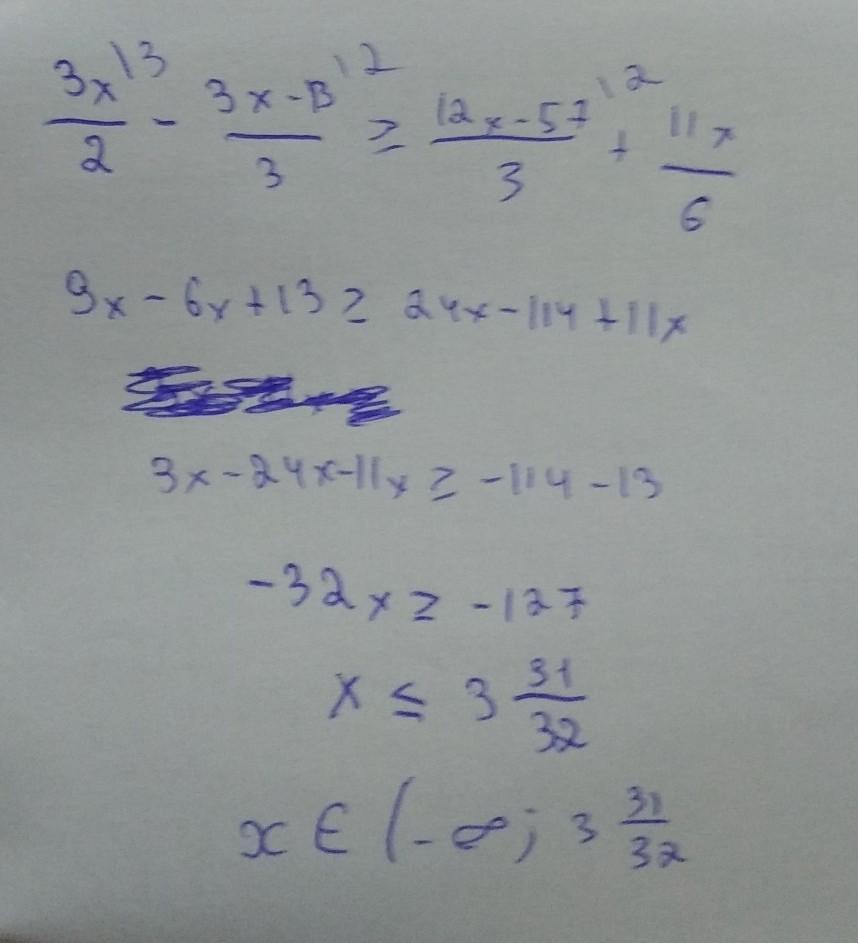 3x\3 / 2 - 3x-13\2 / 3 ≥ 12x-57\2 / 3 + 11x / 6
9x - 6x + 13 ≥ 24x - 114 + 11x
3x - 24x - 11x ≥ -114 - 13
-32x ≥ -127
x ≤ 3 31/32
x ∈ (-∞; 3 31/32